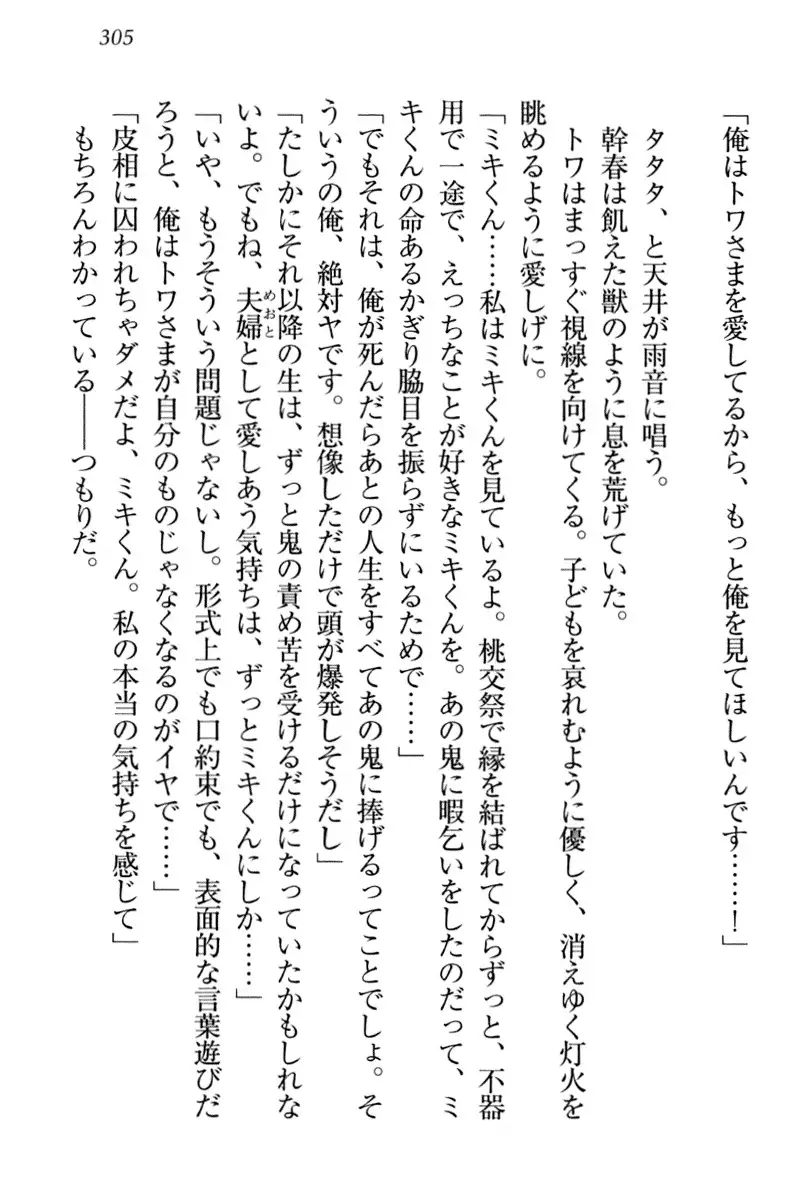 305
「俺はトワさまを愛してるから、もっと俺を見てほしいんです……!」
タタタ、と天井が雨音に唱う。
幹春は飢えた獣のように息を荒げていた。
トワはまっすぐ視線を向けてくる。子どもを哀れむように優しく、消えゆく灯火を
眺めるように愛しげに。
「ミキくん……私はミキくんを見ているよ。桃交祭で縁を結ばれてからずっと、不器
用で一途で、えっちなことが好きなミキくんを。あの鬼に暇乞いをしたのだって、ミ
キくんの命あるかぎり脇目を振らずにいるためで……」
「でもそれは、俺が死んだらあとの人生をすべてあの鬼に捧げるってことでしょ。そ
ういうの俺、絶対ヤです。想像しただけで頭が爆発しそうだし」
「たしかにそれ以降の生は、ずっと鬼の責め苦を受けるだけになっていたかもしれな
いよ。でもね、夫婦めおととして愛しあう気持ちは、ずっとミキくんにしか……」
「いや、もうそういう問題じゃないし。形式上でも口約束でも、表面的な言葉遊びだ
ろうと、俺はトワさまが自分のものじゃなくなるのがイヤで……」
「皮相に囚われちゃダメだよ、ミキくん。私の本当の気持ちを感じて」
もちろんわかっている――つもりだ。